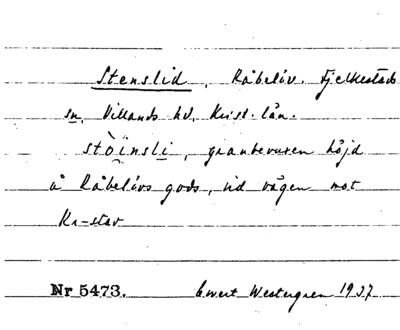 Stenslid, Råbelöv. Fjelkestads
sn, Villands hd, Krist. län.
stòinsli, granbevuxen höjd
å Råbelövs gods, vid vägen mot
Kr-stad
Nr 5473. Ewert Westergren 1937